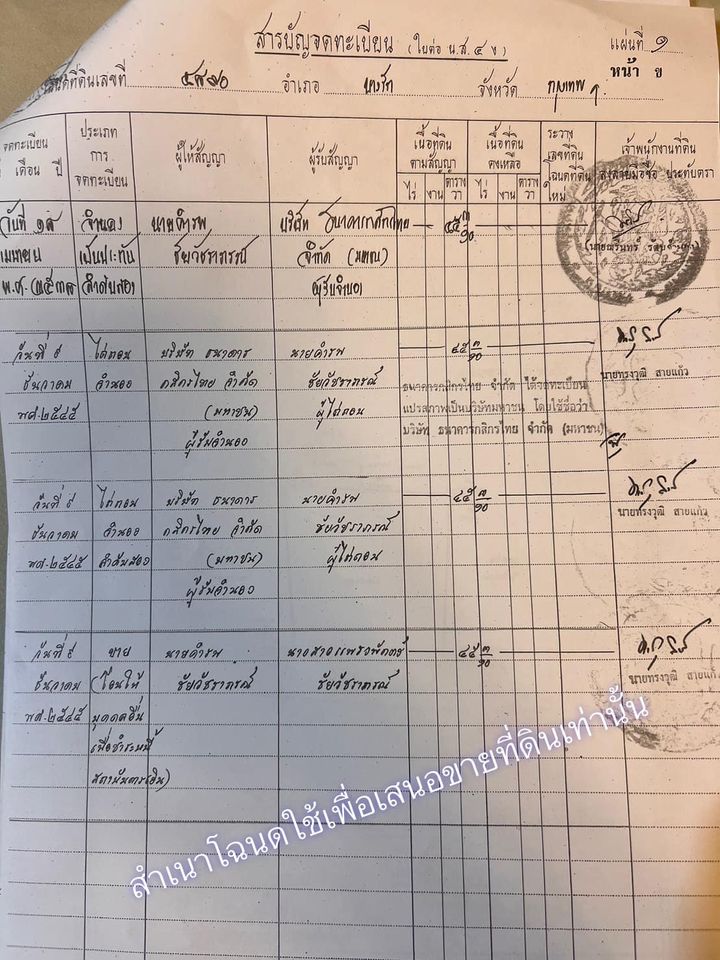 สารบัญจดทะเบียน (ใบต่อ น.ส. ๔ ง) แผ่นที่ ๑
หน้า ข
ที่ดินเลขที่ อำเภอ จังหวัด กรุงเทพฯ
จดทะเบียน
เดือน ปี
ประเภท
การ
จดทะเบียน
ผู้ให้สัญญา
ผู้รับสัญญา
เนื้อที่ดิน
ตามสัญญา
ไร่ งาน ตาราง
วา
เนื้อที่ดิน
คงเหลือ
ไร่ งาน ตาราง
วา
ระวาง
เลขที่ดิน
โฉนดที่ดิน
ใหม่
เจ้าพนักงานที่ดิน
ลงลายมือชื่อ ประทับตรา
วันที่ ๑๘ จำนอง นายคำรพ บริษัท ธนาคารกสิกรไทย ๔๕ ๓/๑๐
เมษายน เป็นประกัน ชัยวัชราภรณ์ จำกัด (มหาชน)
พ.ศ. ลำดับสอง ผู้รับจำนอง
วันที่ ๙ ไถ่ถอน บริษัท ธนาคาร นายคำรพ ๔๕ ๓/๑๐
ธันวาคม จำนอง กสิกรไทย จำกัด ชัยวัชราภรณ์
พศ. ๒๕๔๕ (มหาชน) ผู้ไถ่ถอน
ผู้รับจำนอง
นายทรงวุฒิ สายแก้ว
ธนาคารกสิกรไทย จำกัด ได้จดทะเบียน
แปรสภาพเป็นบริษัทมหาชน โดยใช้ชื่อว่า
บริษัท ธนาคารกสิกรไทย จำกัด (มหาชน)
วันที่ ๙ ไถ่ถอน บริษัท ธนาคาร นายคำรพ ๔๕ ๓/๑๐
ธันวาคม จำนอง กสิกรไทย จำกัด ชัยวัชราภรณ์
พศ. ๒๕๔๕ ลำดับสอง (มหาชน) ผู้ไถ่ถอน
ผู้รับจำนอง
นายทรงวุฒิ สายแก้ว
วันที่ ๙ ขาย นายคำรพ ๔๕ ๓/๑๐
ธันวาคม (โอนให้ ชัยวัชราภรณ์ ชัยวัชราภรณ์
พศ. ๒๕๔๕ บุคคลอื่น
เพื่อชำระหนี้
สถาบันการเงิน)
นายทรงวุฒิ สายแก้ว
สำเนาโฉนดใช้เพื่อเสนอขายที่ดินเท่านั้น